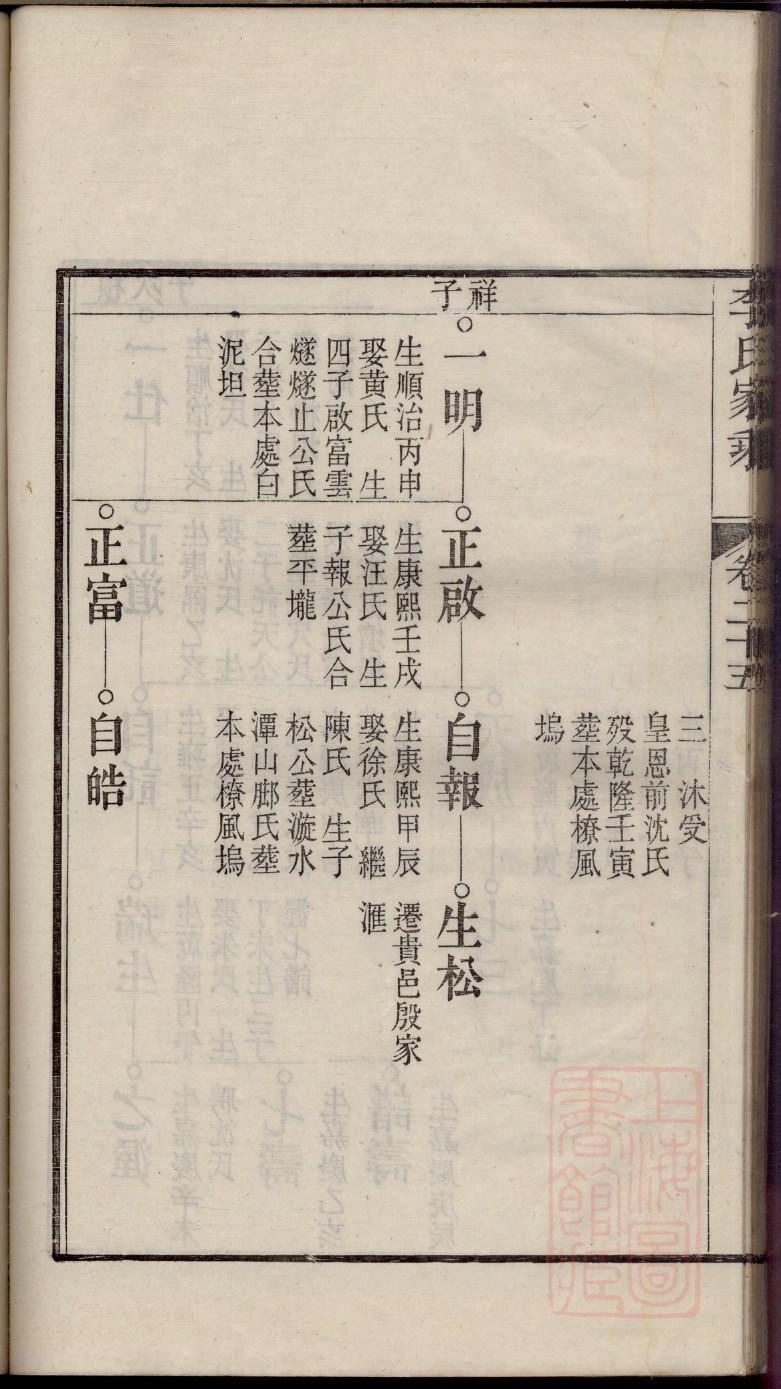 李氏家乘
卷二十五
三　沐受
皇恩前沈氏
歿乾隆壬寅
塟本處橑風
塢
祥
子
一明
生順治丙申
娶黄氏　生
四子啟富雲
燧燧止公氏
合塟本處白
泥坦
正啟
生康熙壬戌
娶汪氏　生
子報公氏合
塟平壠
自報
生康熙甲辰
娶徐氏　繼
陳氏　生子
松公塟漩水
潭山郕氏塟
本處橑風塢
生松
遷貴邑殷家
滙
正富
自皓
上海圖
書館藏